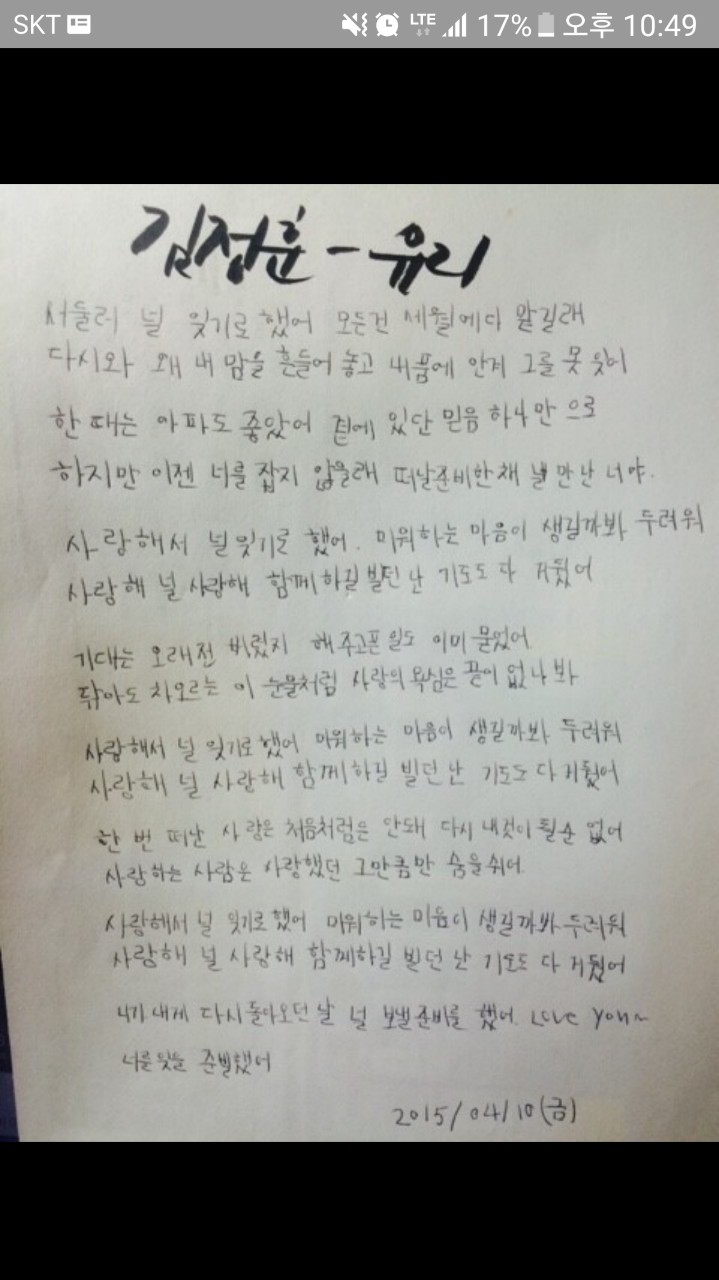 SKT LTE 17% 오후 10:49
김정훈 - 유리
서둘러 널 잊기로 했어 모든건 세월에다 맡길래
다시와 왜 내 맘을 흔들어 놓고 내품에 안겨 그를 못 잊어
한 때는 아파도 좋았어 곁에 있단 믿음 하나만 으로
하지만 이젠 너를 잡지 않을래 떠날준비한채 날 만난 너야.
사랑해서 널 잊기로 했어. 미워하는 마음이 생길까봐 두려워
사랑해 널 사랑해 함께하길 빌던 난 기도도 다 거뒀어
기대는 오래전 버렸지 해주고픈 일도 이미 묻었어
닦아도 차오르는 이 눈물처럼 사랑의 욕심은 끝이 없나 봐
사랑해서 널 잊기로 했어 미워하는 마음이 생길까봐 두려워
사랑해 널 사랑해 함께하길 빌던 난 기도도 다 거뒀어
한 번 떠난 사랑은 처음처럼은 안돼 다시 내것이 될순 없어
사랑하는 사람은 사랑했던 그만큼만 숨을쉬어.
사랑해서 널 잊기로 했어 미워하는 마음이 생길까봐 두려워
사랑해 널 사랑해 함께하길 빌던 난 기도도 다 거뒀어
니가 내게 다시 돌아오던 날 널 보낼준비를 했어. Love You~
너를잊을 준빌했어
2015/04/10(금)